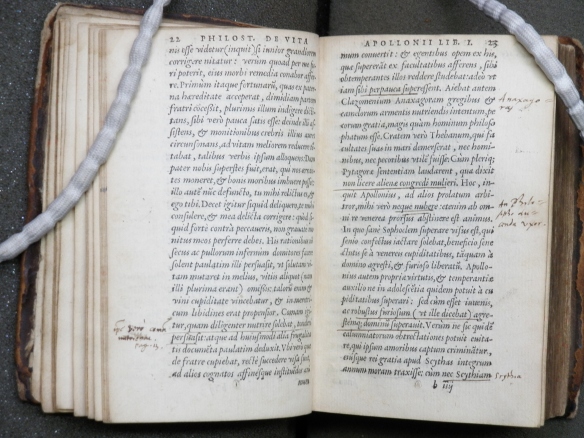 22 PHILOST. DE VITA
nis esse videtur (inquit) si iunior grandiorem
corrigere nitatur: verùm quoad per me fie
ri poterit, eius morbi remedia conabor affer
re. Primùm itaque fortunarũ, quas ex pater
na hæreditate acceperat, dimidiam partem
fratri cõcessit, plurimis illum indigere dicti
tans, sibi verò pauca satis esse: deinde illi as
sistens, & monitionibus crebris illius aures
circunsonans, ad vitam meliorem reducere
tabat, talibus verbis ipsum alloquens:
pater nobis superstes fuit, erat, qui nos
tes moneret, & bonis moribus imbuere posset:
illo autẽ nũc defuncto, tu mihi relictus es, &
ego tibi. Decet igitur siquid deliquero, te mihi
consulere, & mea delicta corrigere: quòd si
quid fortè contrà peccaueris, non grauatè
nitus meos perferre debes. His rationibus
secus ac pullorum infermum domitores facere
solent paulatim illi persuasit, vt salutarẽ vi
tam mutaret in melius, vitia aliquot (nam
illi plurima erant) omisso: talorũ enim &
vini cupiditate vincebatur, & in mereti
cum libidines erat propensus. Comam
tur, quam diligenter nutrire solebat, tondere
persuasit: atque ad huiusmodi alia frugalita
tis documẽta paulatim deduxit. Vbi verò
de fratre cupiebat, rectè succedere visa sunt,
ad alios cognatos affinesque instituendos
mum
APOLLONII LIB. I. 23
mum conuertit: & egestibus opem ex his,
quæ supererãt ex facultatibus afferens, sibi
obtemperantes illos reddere studebat: adeo vt
iam sibi perpauca superessent. Aiebat autem
Clazomenium Anaxagoram gregibus &
camelorum armentis nutriendis intentum, pe
corum gratia, magis quàm hominum philoso
phatum esse. Cratem verò Thebanum, qui fa
cultates suas in mari demerserat, nec homi
nibus, nec pecoribus vtilẽ fuisse. Cùm pleriq;
Pytagoræ sententiam laudarent, qua dixit
non licere alienæ congredi mulieri. Hoc, in
quit Apollonius, ad alios prolatum arbi
tror, mihi verò neque nubere: etenim ab om
ni re venerea prorsus abstinere est animus.
In quo sanè Sophoclem superare visus est, qui
senio confectus iactare solebat, beneficio sene
ctutis se à venereis cupiditatibus, tãquam à
domino agresti, & furioso liberatũ. Apollo
nius autem propria virtute, & temperantiæ
auxilio ne in adolescẽtia quidem potuit à cu
piditatibus superari: sed cùm esset iuuenis,
ac robustus furiosum (vt ille dicebat) agre
stemque dominũ superauit. Verùm ne sic quidẽ
calumniatorum obtrectationes potuit euita
re, qui ipsum amoribus captum criminãtur,
eiusque rei gratia apud Scythas integrum
annum moram traxisse: cùm nec Scythiam
b iiij
Scythia